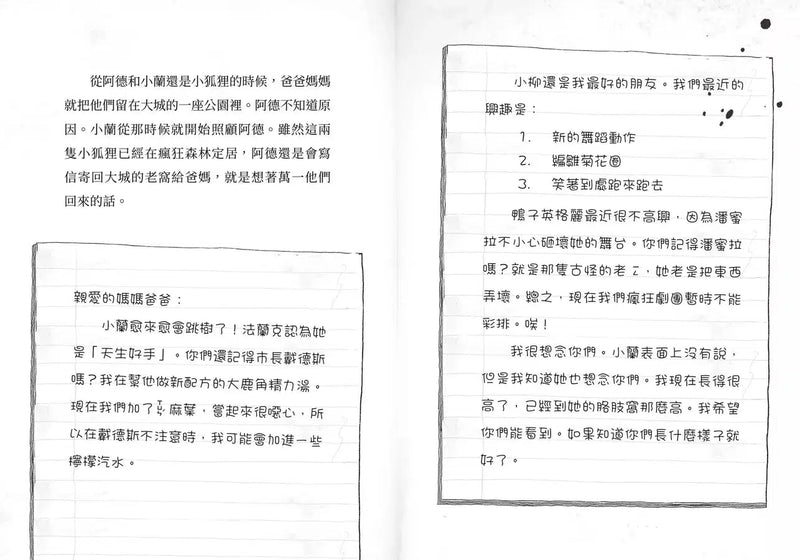 從阿德和小蘭還是小狐狸的時候，爸爸媽媽
就把他們留在大城的一座公園裡。阿德不知道原
因。小蘭從那時候就開始照顧阿德。雖然這兩
隻小狐狸已經在瘋狂森林定居，阿德還是會寫
信寄回大城的老窩給爸媽，就是想著萬一他們
回來的話。
親愛的媽媽爸爸：
小蘭愈來愈會跳樹了！法蘭克認為她
是「天生好手」。你們還記得市長戴德斯
嗎？我在幫他做新配方的大鹿角精力湯。
現在我們加了ㄒㄩㄣ麻葉，嘗起來很噁心，所
以在戴德斯不注意時，我可能會加進一些
檸檬汽水。
小柳還是我最好的朋友。我們最近的
興趣是：
1. 新的舞蹈動作
2. 編雛菊花圈
3. 笑著到處跑來跑去
鴨子英格麗最近很不高興，因為潘蜜
拉不小心砸壞她的舞台。你們記得潘蜜拉
嗎？就是那隻古怪的老ㄥ，她老是把東西
弄壞。總之，現在我們瘋狂劇團暫時不能
彩排。唉！
我很想念你們。小蘭表面上沒有說，
但是我知道她也想念你們。我現在長得很
高了，已經到她的胳肢窩那麼高。我希望
你們能看到。如果知道你們長什麼樣子就
好了。